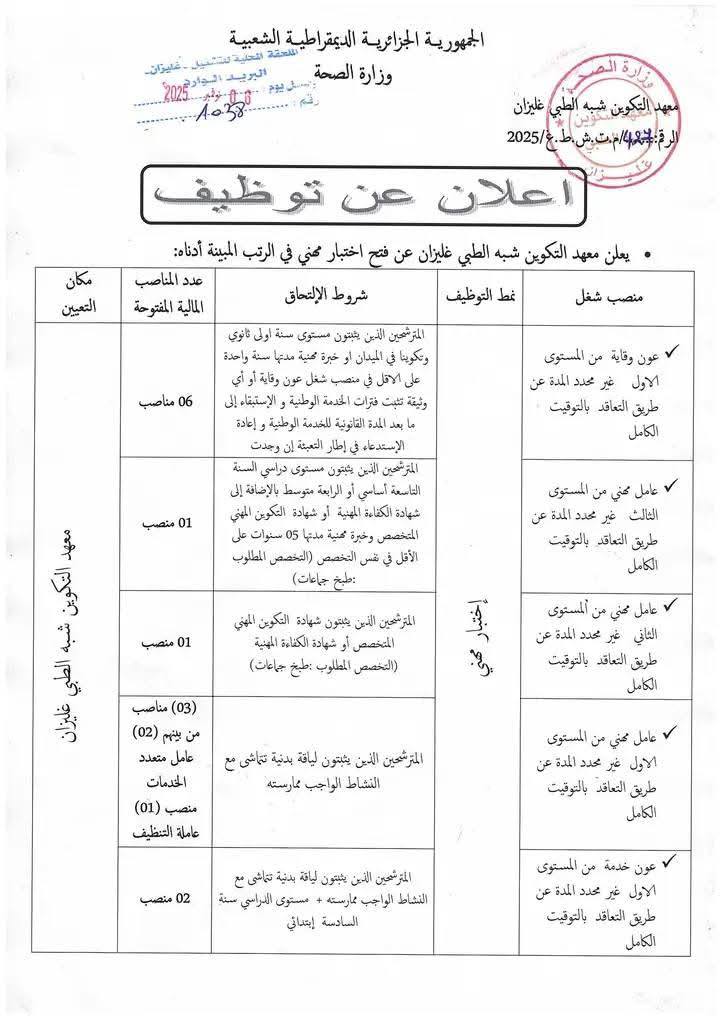 الجمهورية الجزائرية الديمقراطية الشعبية
وزارة الصحة
الملحقة المحلية للتشغيل - غليزان -
البريد الوارد
يوم : 06 نوفمبر 2025
رقم : 1038
وزارة الصحة
معهد التكوين شبه الطبي غليزان
الرقم: 427/م.ت.ش.ط.غ/2025
اعلان عن توظيف
• يعلن معهد التكوين شبه الطبي غليزان عن فتح اختبار مهني في الرتب المبينة أدناه:
منصب شغل
نمط التوظيف
شروط الإلتحاق
عدد المناصب
المالية المفتوحة
مكان
التعيين
✓ عون وقاية من المستوى
الاول غير محدد المدة عن
طريق التعاقد بالتوقيت
الكامل
إختبار مهني
المترشحين الذين يثبتون مستوى سنة اولى ثانوي
وتكوينا في الميدان او خبرة مهنية مدتها سنة واحدة
على الاقل في منصب شغل عون وقاية أو أي
وثيقة تثبت فترات الخدمة الوطنية و الإستبقاء إلى
ما بعد المدة القانونية للخدمة الوطنية و إعادة
الإستدعاء في إطار التعبئة إن وجدت
06 مناصب
معهد التكوين شبه الطبي غليزان
✓ عامل مهني من المستوى
الثالث غير محدد المدة عن
طريق التعاقد بالتوقيت
الكامل
المترشحين الذين يثبتون مستوى دراسي السنة
التاسعة أساسي أو الرابعة متوسط بالإضافة إلى
شهادة الكفاءة المهنية أو شهادة التكوين المهني
المتخصص وخبرة مهنية مدتها 05 سنوات على
الأقل في نفس التخصص (التخصص المطلوب
:طبخ جماعات)
01 منصب
✓ عامل مهني من المستوى
الثاني غير محدد المدة عن
طريق التعاقد بالتوقيت
الكامل
المترشحين الذين يثبتون شهادة التكوين المهني
المتخصص أو شهادة الكفاءة المهنية
(التخصص المطلوب :طبخ جماعات)
01 منصب
✓ عامل مهني من المستوى
الاول غير محدد المدة عن
طريق التعاقد بالتوقيت
الكامل
المترشحين الذين يثبتون لياقة بدنية تتماشى مع
النشاط الواجب ممارسته
(03) مناصب
من بينهم (02)
عامل متعدد
الخدمات
منصب (01)
عاملة التنظيف
✓ عون خدمة من المستوى
الاول غير محدد المدة عن
طريق التعاقد بالتوقيت
الكامل
المترشحين الذين يثبتون لياقة بدنية تتماشى مع
النشاط الواجب ممارسته + مستوى الدراسي سنة
السادسة إبتدائي
02 منصب